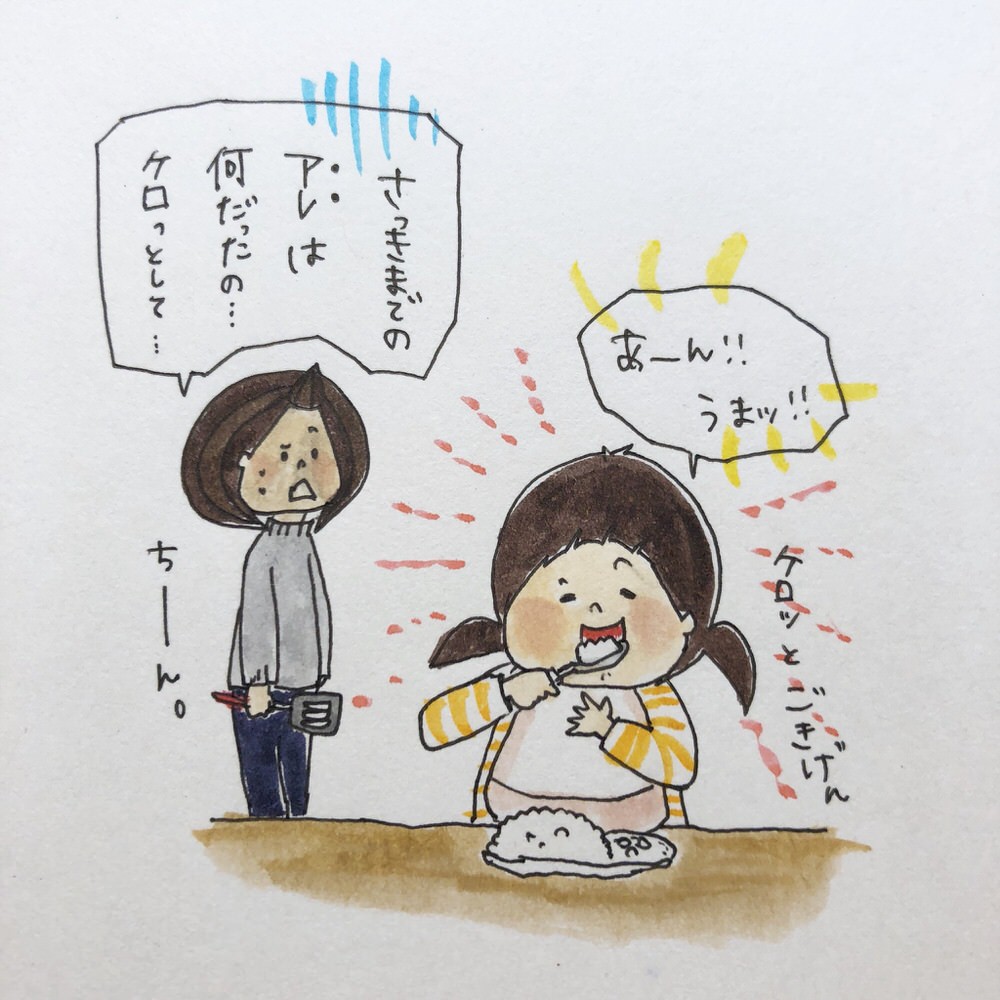 さっきまでの
アレは
何だったの…
ケロっとして…
あーん!!
うまッ!!
ちーーん。
ケロッとごきげん